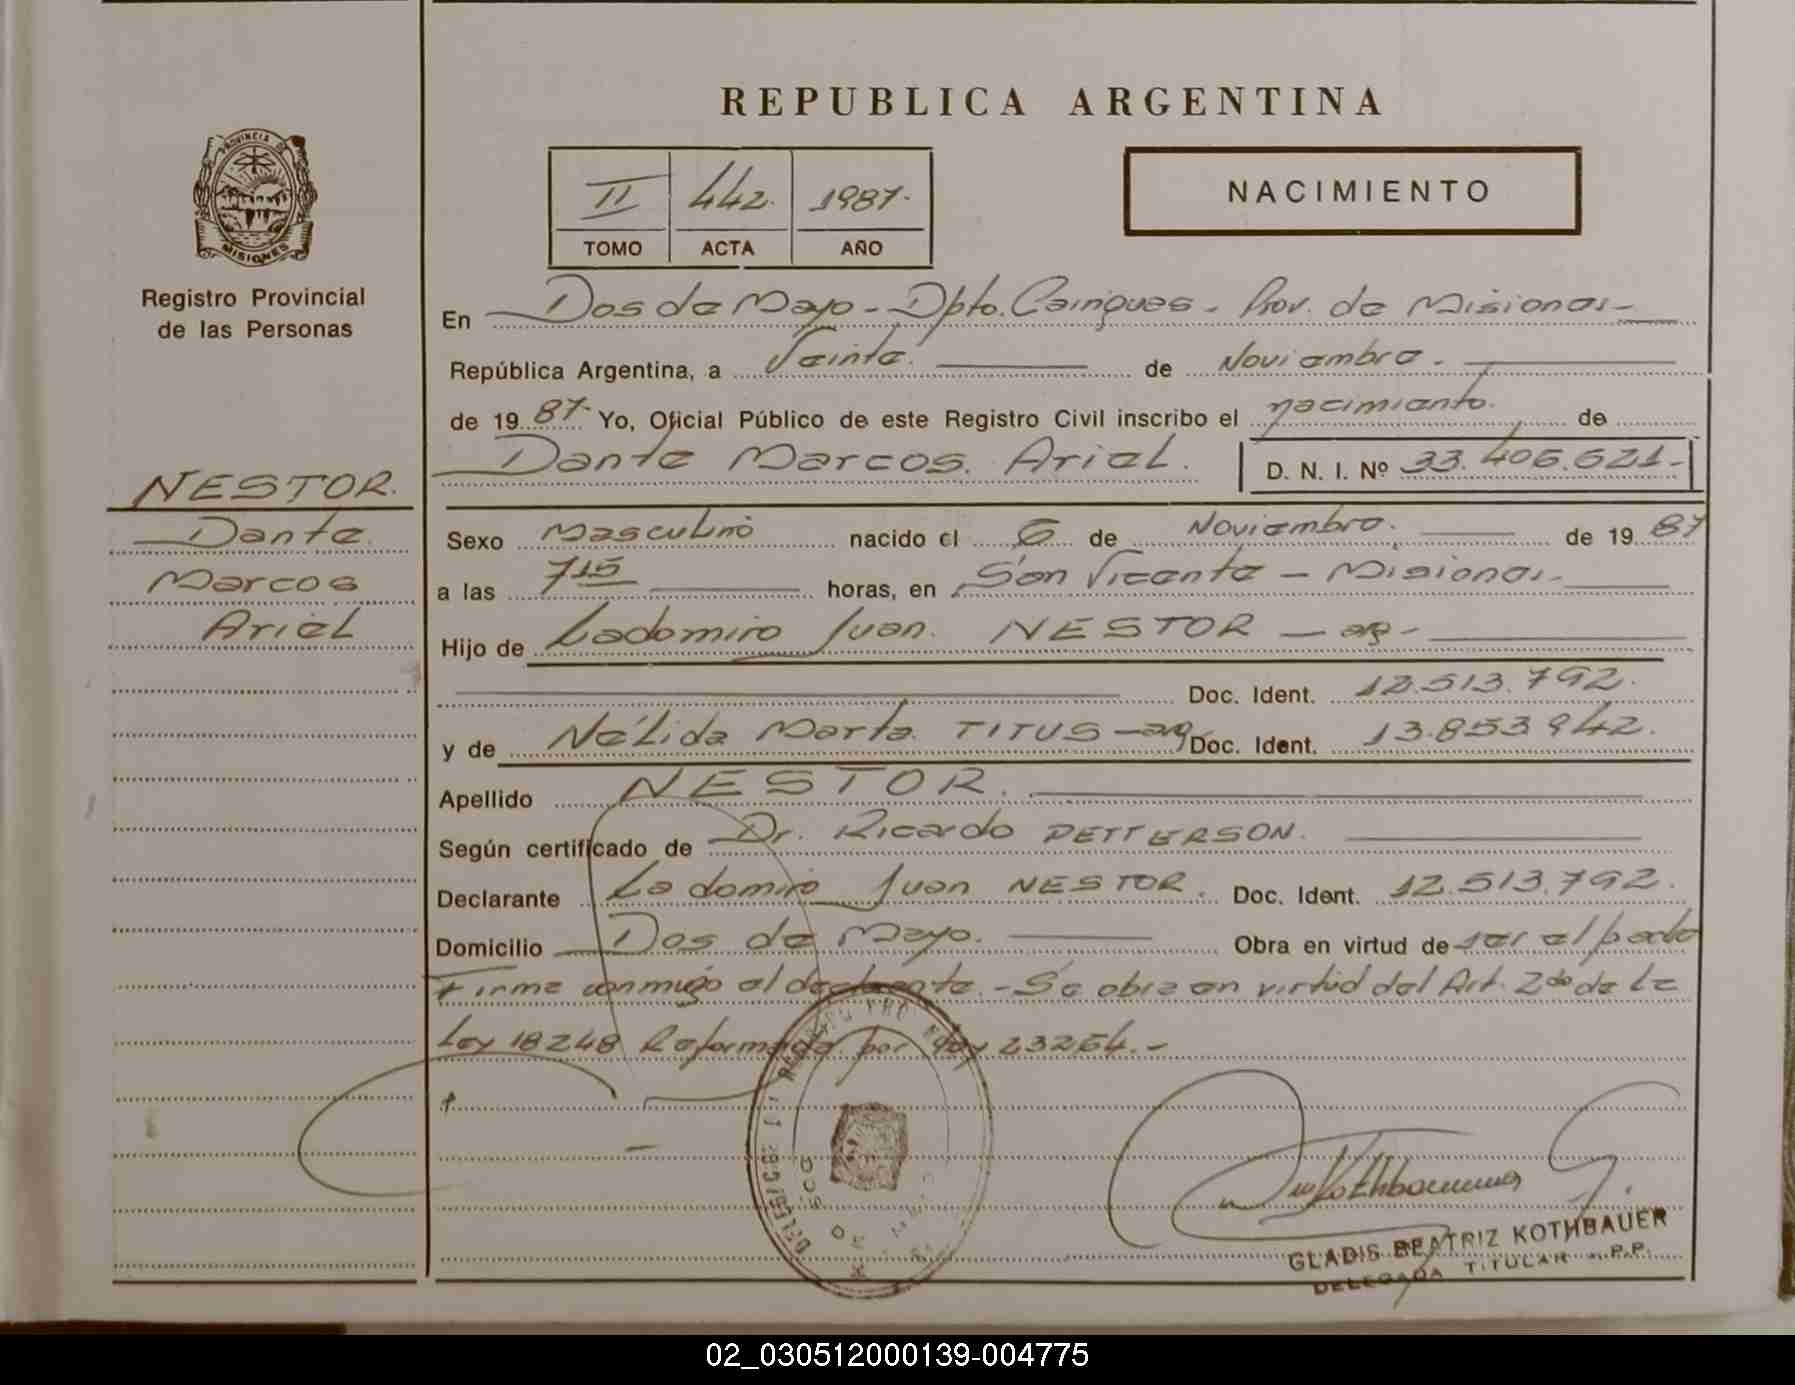 REPUBLICA ARGENTINA
PROVINCIA DE
MISIONES
Registro Provincial
de las Personas
II 442. 1987.
TOMO ACTA AÑO
NACIMIENTO
En Dos de Mayo - Dpto. Cainguas - Prov. de Misiones -
República Argentina, a Veinte. de Noviembre.
de 19 87. Yo, Oficial Público de este Registro Civil inscribo el nacimiento. de
Dante Marcos Ariel. D. N. I. Nº 33.406.621-
NESTOR.
Dante
Marcos
Ariel
Sexo Masculino nacido el 6 de Noviembre. de 19 87
a las 7 15 horas, en San Vicente - Misiones.
Hijo de Ladomiro Juan NESTOR - arg -
Doc. Ident. 12.513.792.
y de Nélida Marta TITUS - arg Doc. Ident. 13.853.942.
Apellido NESTOR.
Según certificado de Dr. Ricardo PETTERSON.
Declarante Ladomiro Juan NESTOR. Doc. Ident. 12.513.792.
Domicilio Dos de Mayo. Obra en virtud de ser el padre
Firma conmigo el declarante. - Se obra en virtud del Art. 2do de la
Ley 18248 Reformada por Ley 23264. -
DOS DE MAYO
GLADIS BEATRIZ KOTHBAUER
DELEGADA TITULAR - R.P.P.
02_030512000139-004775